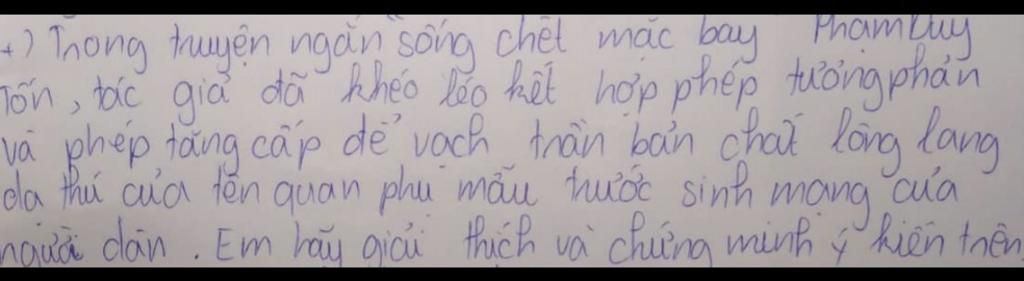 +) Trong truyện ngắn sống chết mặc bay Phạm Duy
Tốn, tác giả đã khéo léo kết hợp phép tương phản
và phép tăng cấp để vạch trần bản chất lòng lang
dạ thú của tên quan phụ mẫu trước sinh mạng của
người dân. Em hãy giải thích và chứng minh ý kiến trên.